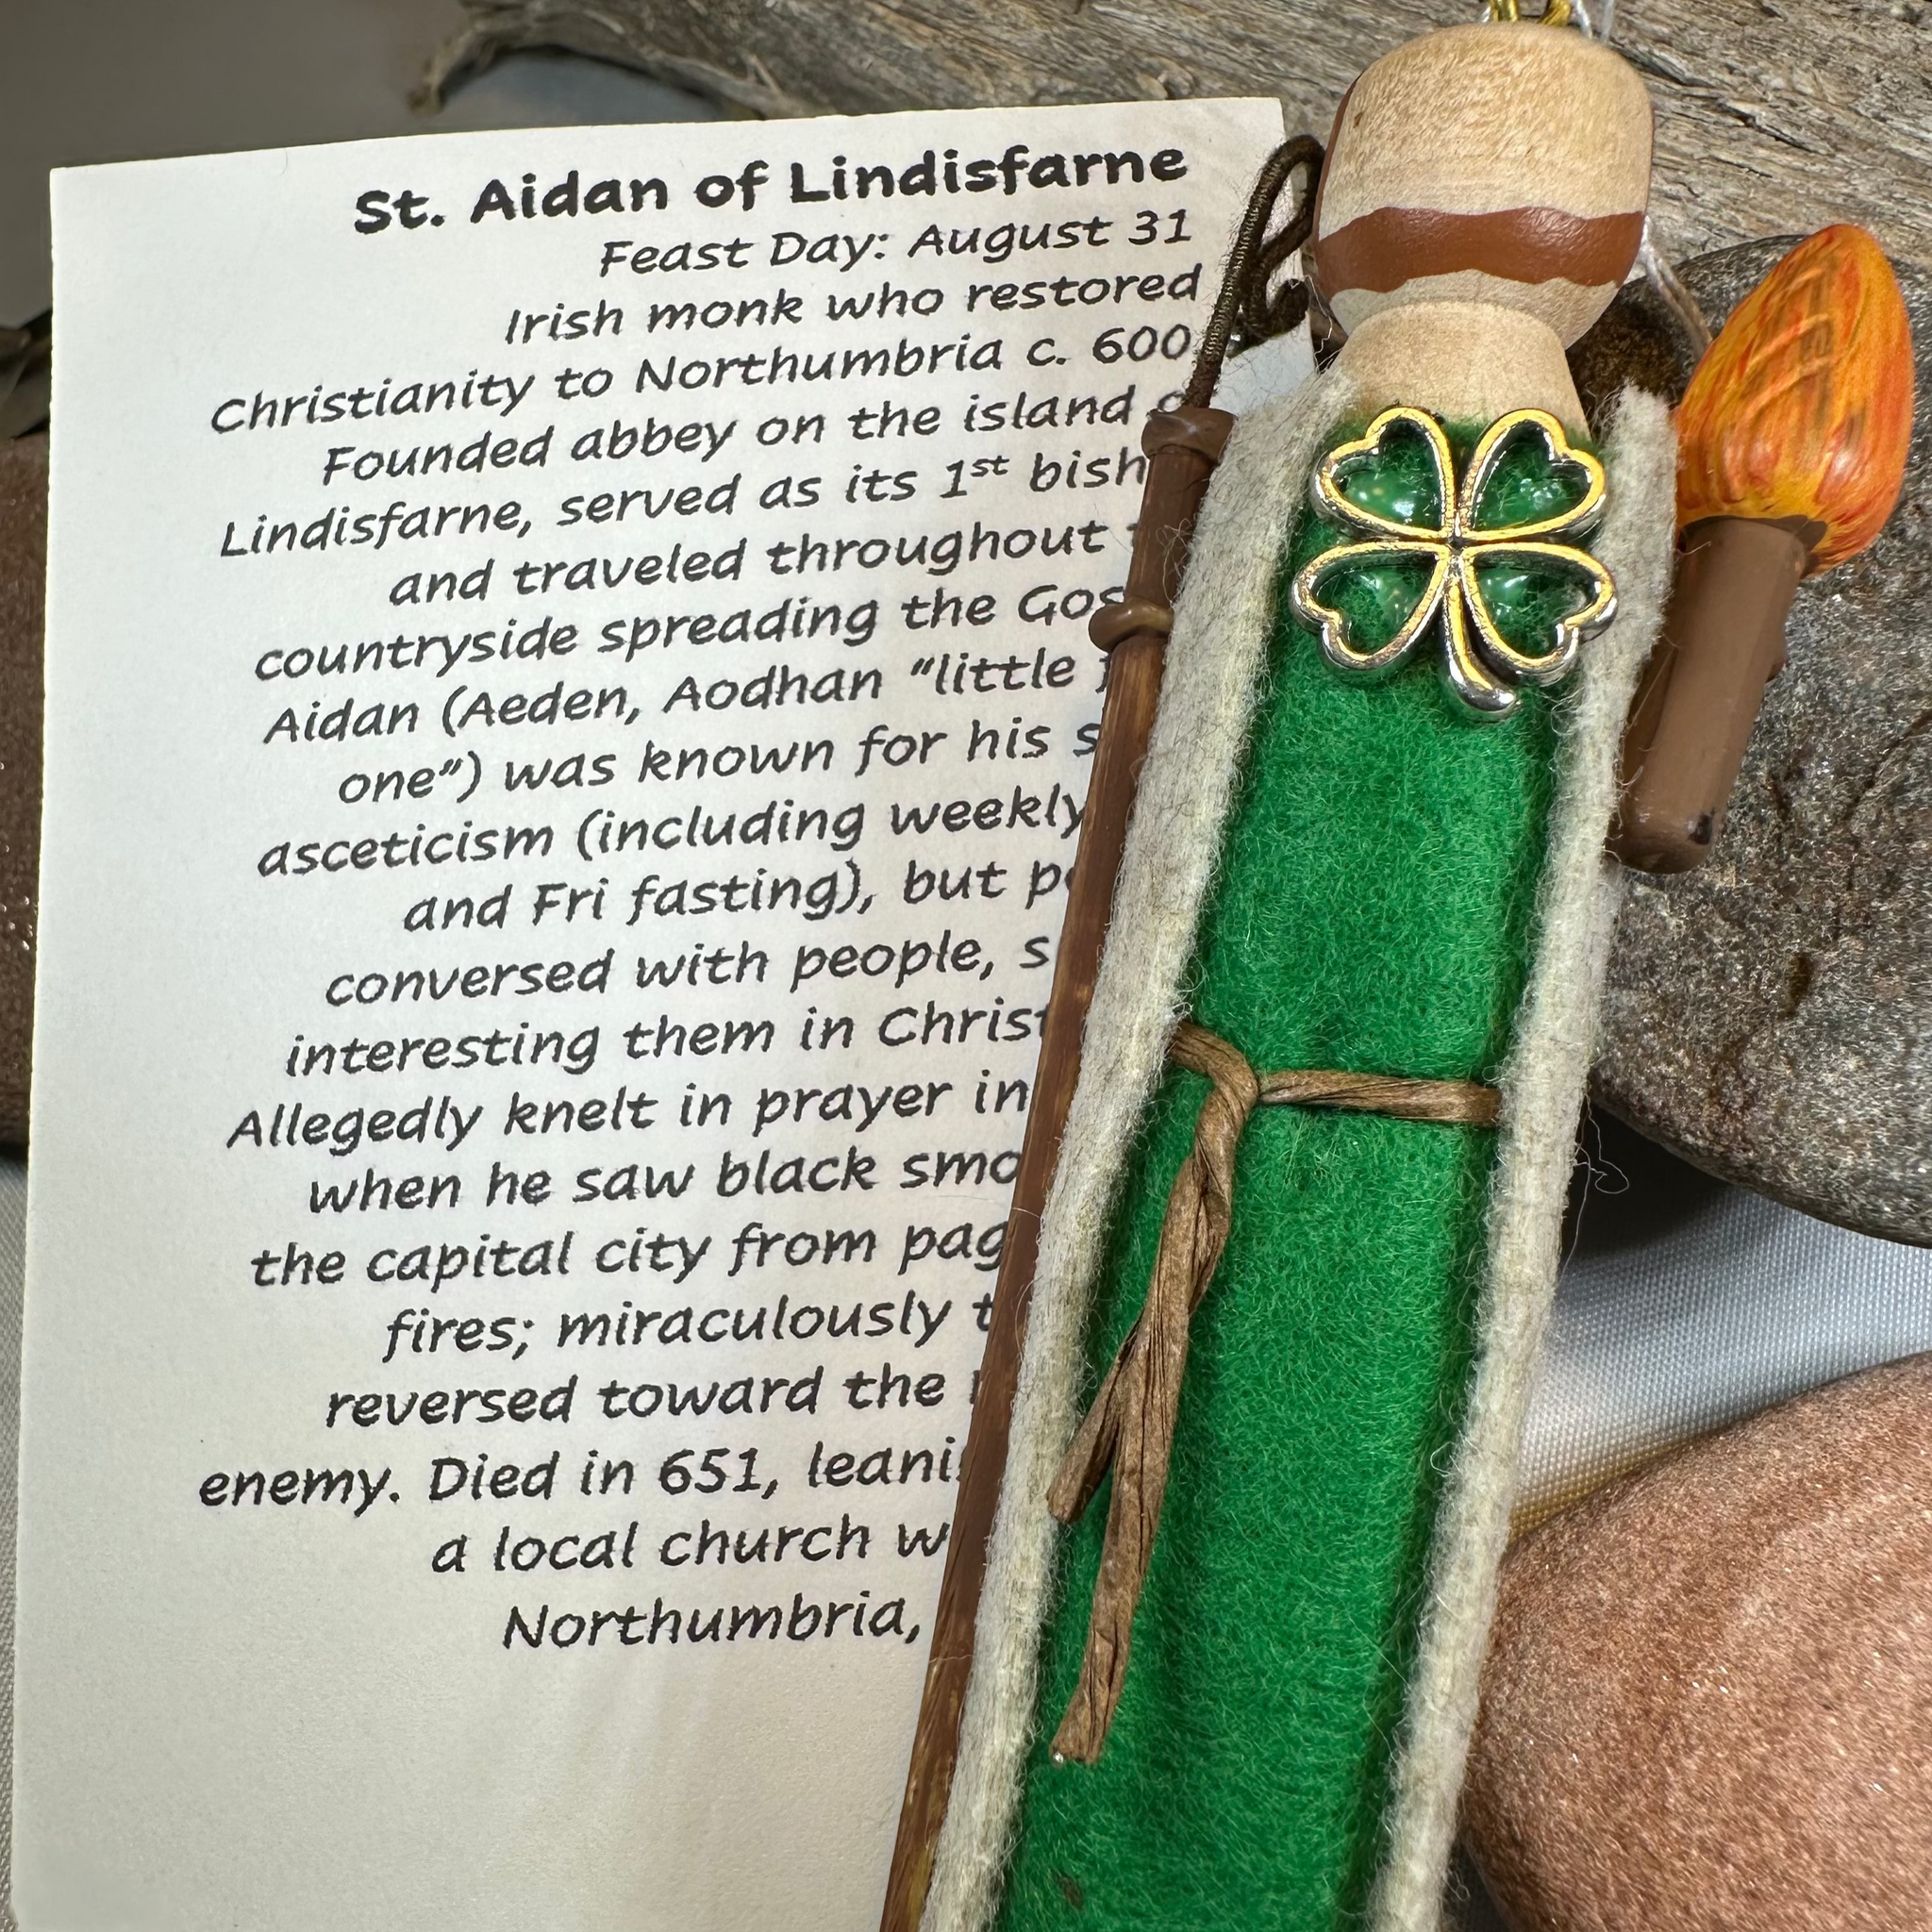 St. Aidan of Lindisfarne
Feast Day: August 31
Irish monk who restored
Christianity to Northumbria c. 600
Founded abbey on the island
Lindisfarne, served as its 1st
and traveled throughout
countryside spreading the
Aidan (Aeden, Aodhan "little
one") was known for his
asceticism (including weekly
and Fri fasting), but
conversed with people,
interesting them in
Allegedly knelt in prayer in
when he saw black
the capital city from
fires; miraculously
reversed toward the
enemy. Died in 651,
a local church
Northumbria,